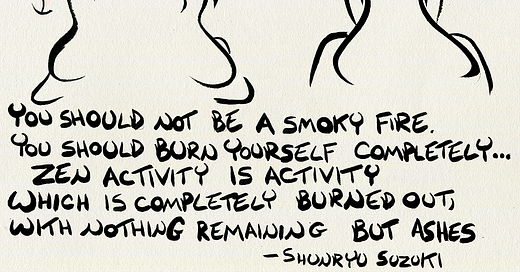 YOU SHOULD NOT BE A SMOKY FIRE.
YOU SHOULD BURN YOURSELF COMPLETELY...
ZEN ACTIVITY IS ACTIVITY
WHICH IS COMPLETELY BURNED OUT,
WITH NOTHING REMAINING BUT ASHES
-SHUNRYU SUZUKI